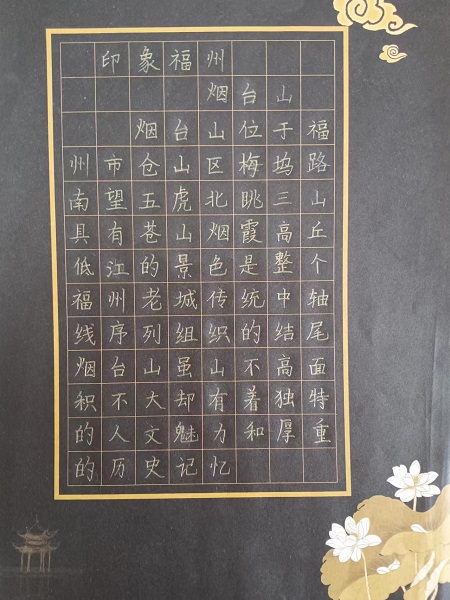 印象福州
烟台山
烟台山位于福
州市仓山区梅坞路
南望五虎北眺三山
具有苍山烟霞高丘
低江的景色是整个
福州老城传统中轴
线序列组织的结尾
烟台山虽山不高面
积不大却有着独特
的人文魅力和厚重
的历史记忆